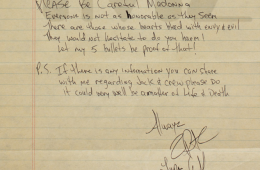 PLEASE Be Careful Madonna
Everyone is not as honorable as they seem
There are those whose hearts bleed with envy & evil
They would not hesitate to do you harm
Let my 5 bullets be proof of that!
P.S. If there is any information you can share
with me regarding Jack & crew please Do
it could very well be a matter of Life & Death
Always